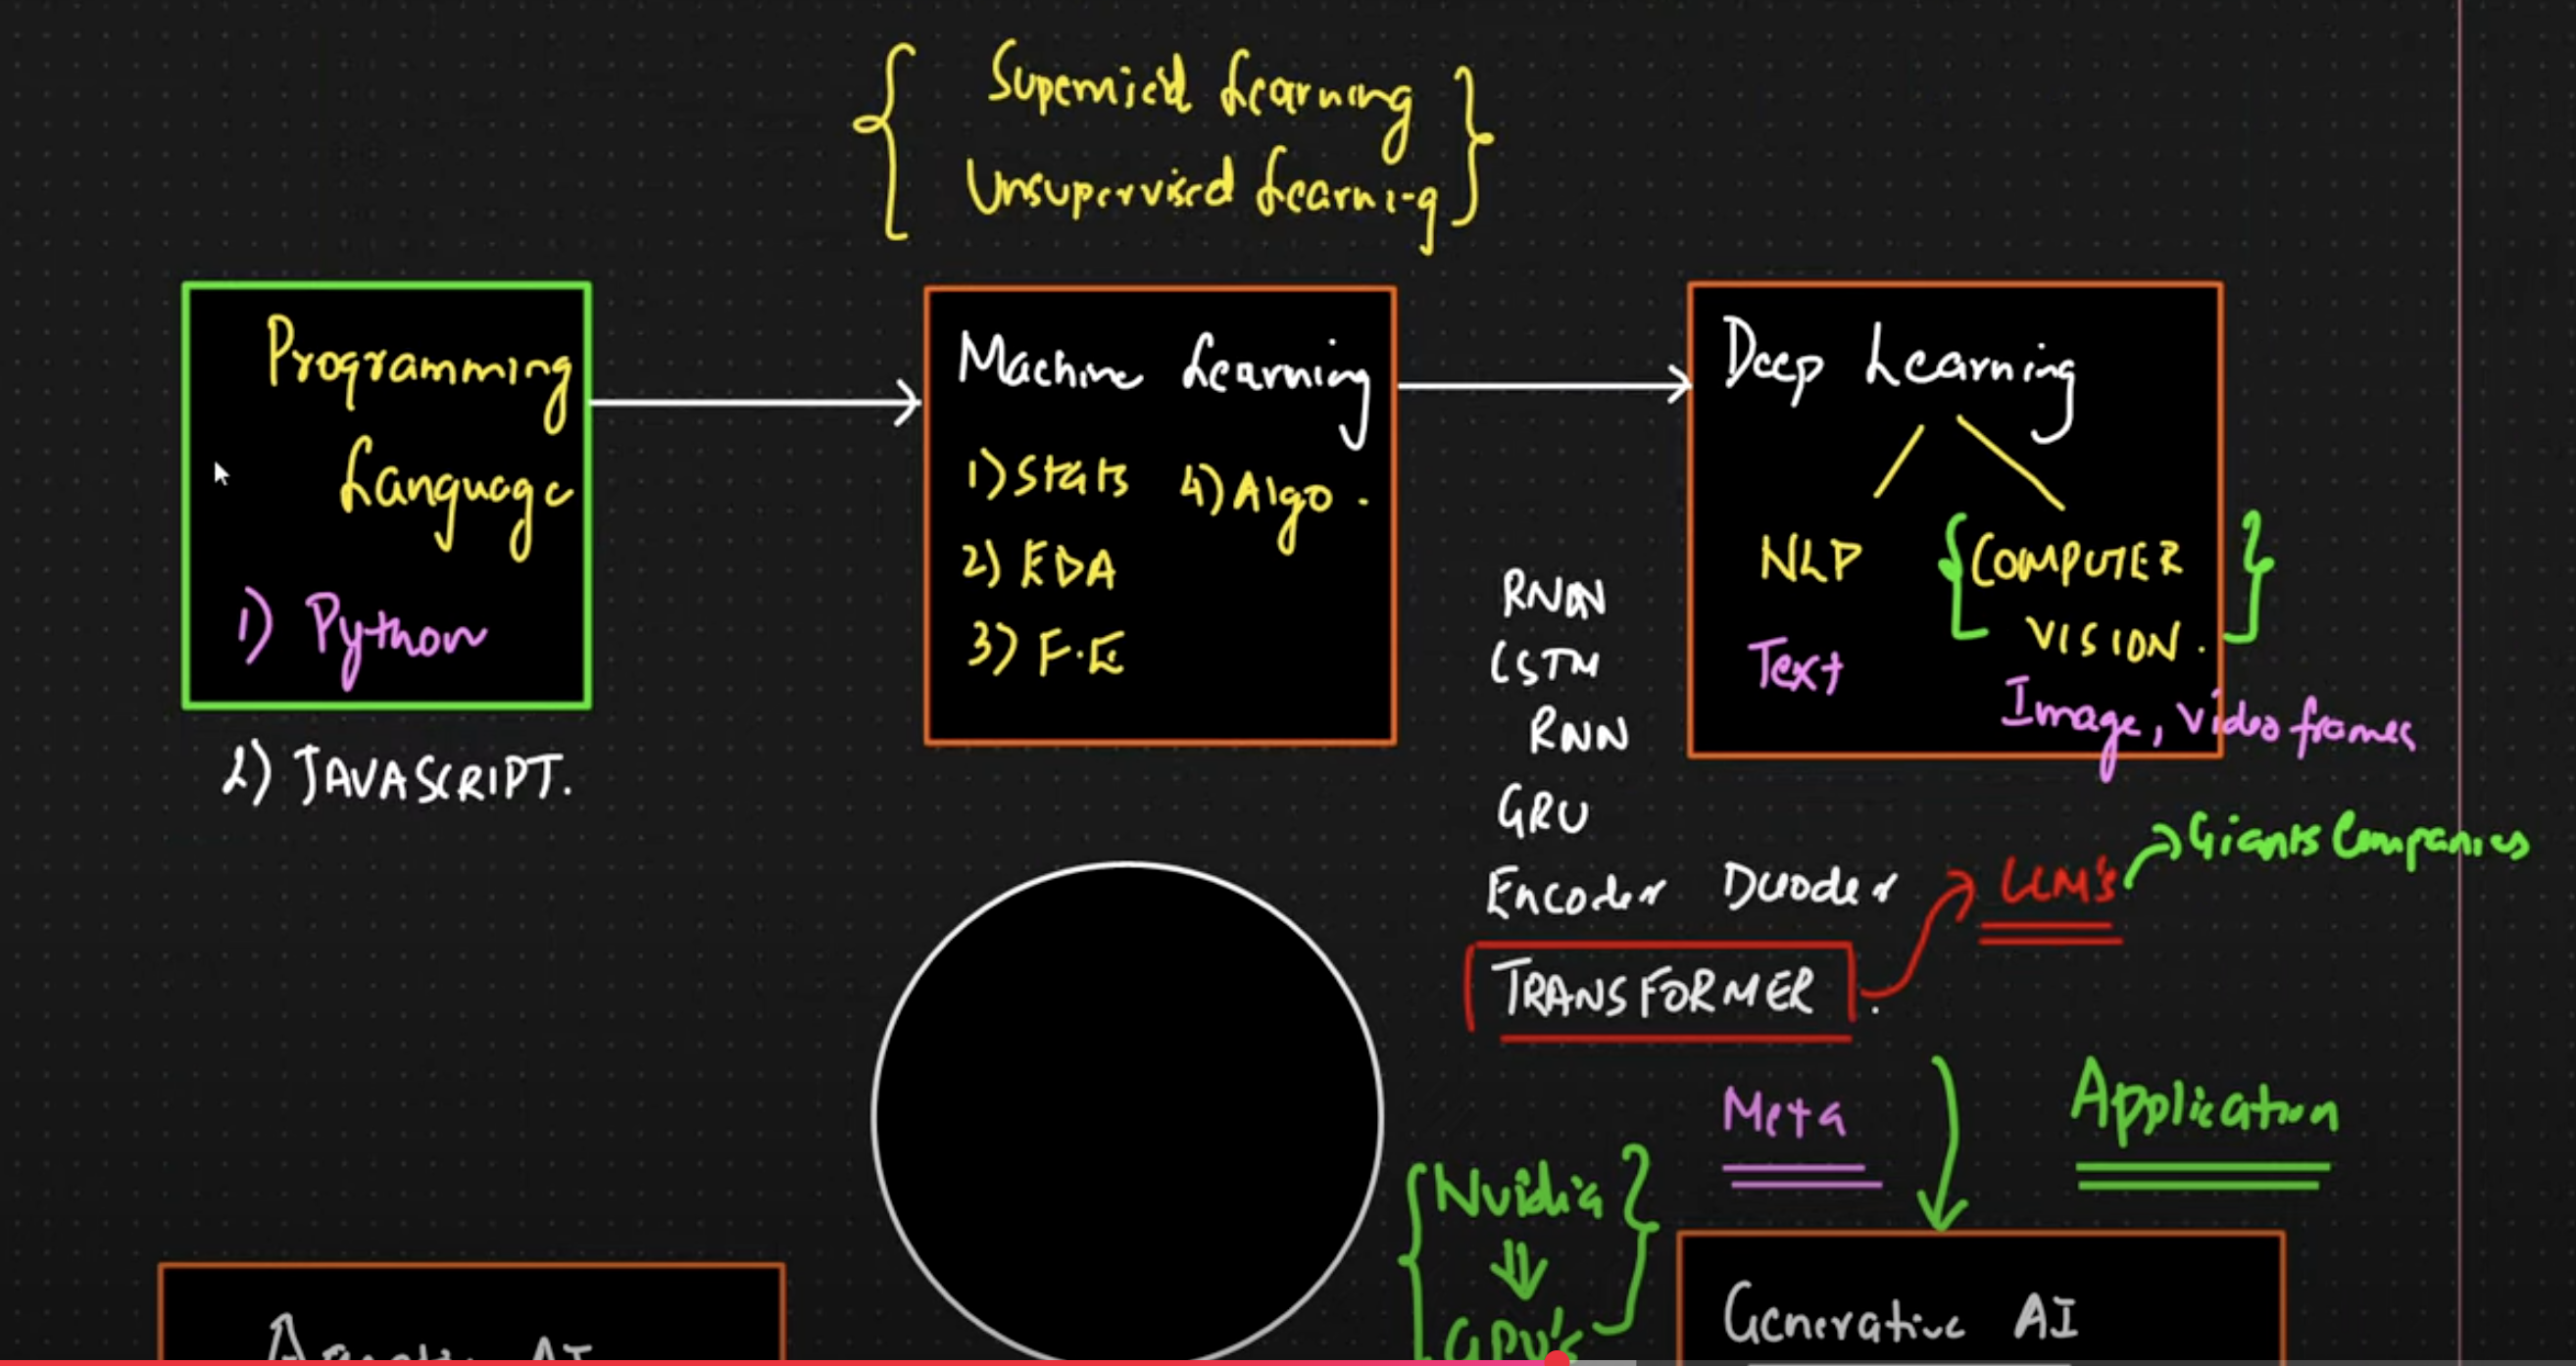 Supervised Learning
Unsupervised Learning
Programming
Language
1) Python
2) JAVASCRIPT.
Machine Learning
1) Stats 4) Algo.
2) EDA
3) F.E
Deep Learning
NLP COMPUTER
VISION.
Text
Image, Video frames
RNN
LSTM
RNN
GRU
Encoder Decoder
TRANSFORMER.
LLM's
Giants Companies
Meta
Application
Nvidia
GPU's
Generative AI
AI